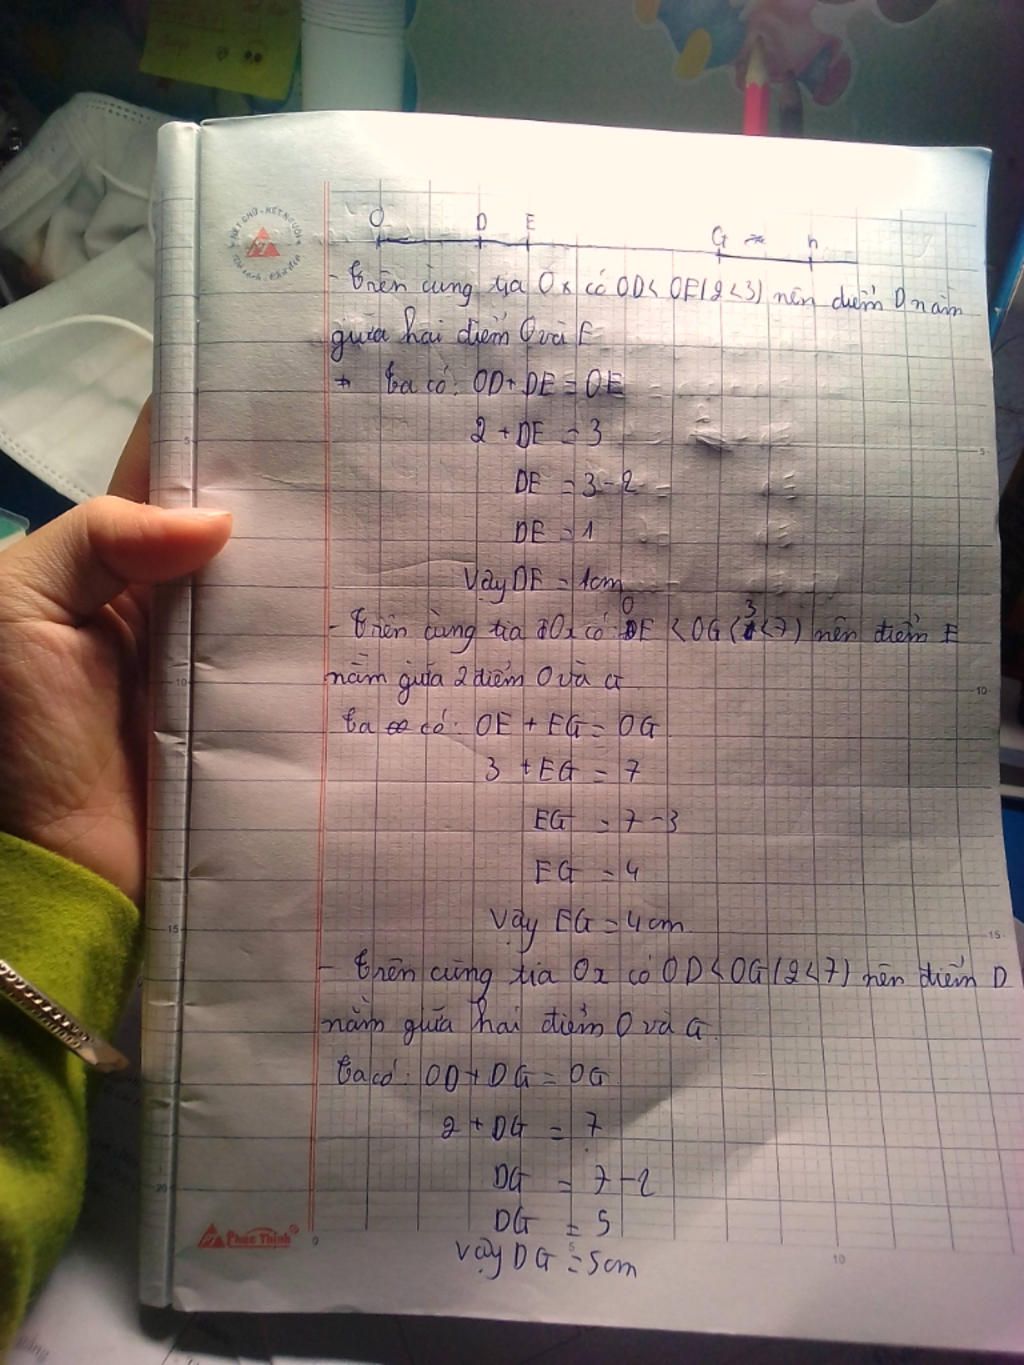 O D E G h
- Trên cùng tia Ox có OD < OE (2<3) nên điểm D nằm
giữa hai điểm O và E
+ Ta có: OD + DE = OE
2 + DE = 3
DE = 3 - 2
DE = 1
Vậy DE = 1cm
- Trên cùng tia Ox có OE < OG (3<7) nên điểm E
nằm giữa 2 điểm O và G
Ta có: OE + EG = OG
3 + EG = 7
EG = 7 - 3
EG = 4
Vậy EG = 4cm
- Trên cùng tia Ox có OD < OG (2<7) nên điểm D
nằm giữa hai điểm O và G.
Ta có: OD + DG = OG
2 + DG = 7
DG = 7 - 2
DG = 5
Vậy DG = 5cm
NÉT CHỮ - NẾT NGƯỜI
Phúc Thịnh
5
10
15
20
5
10
15
0
5
10